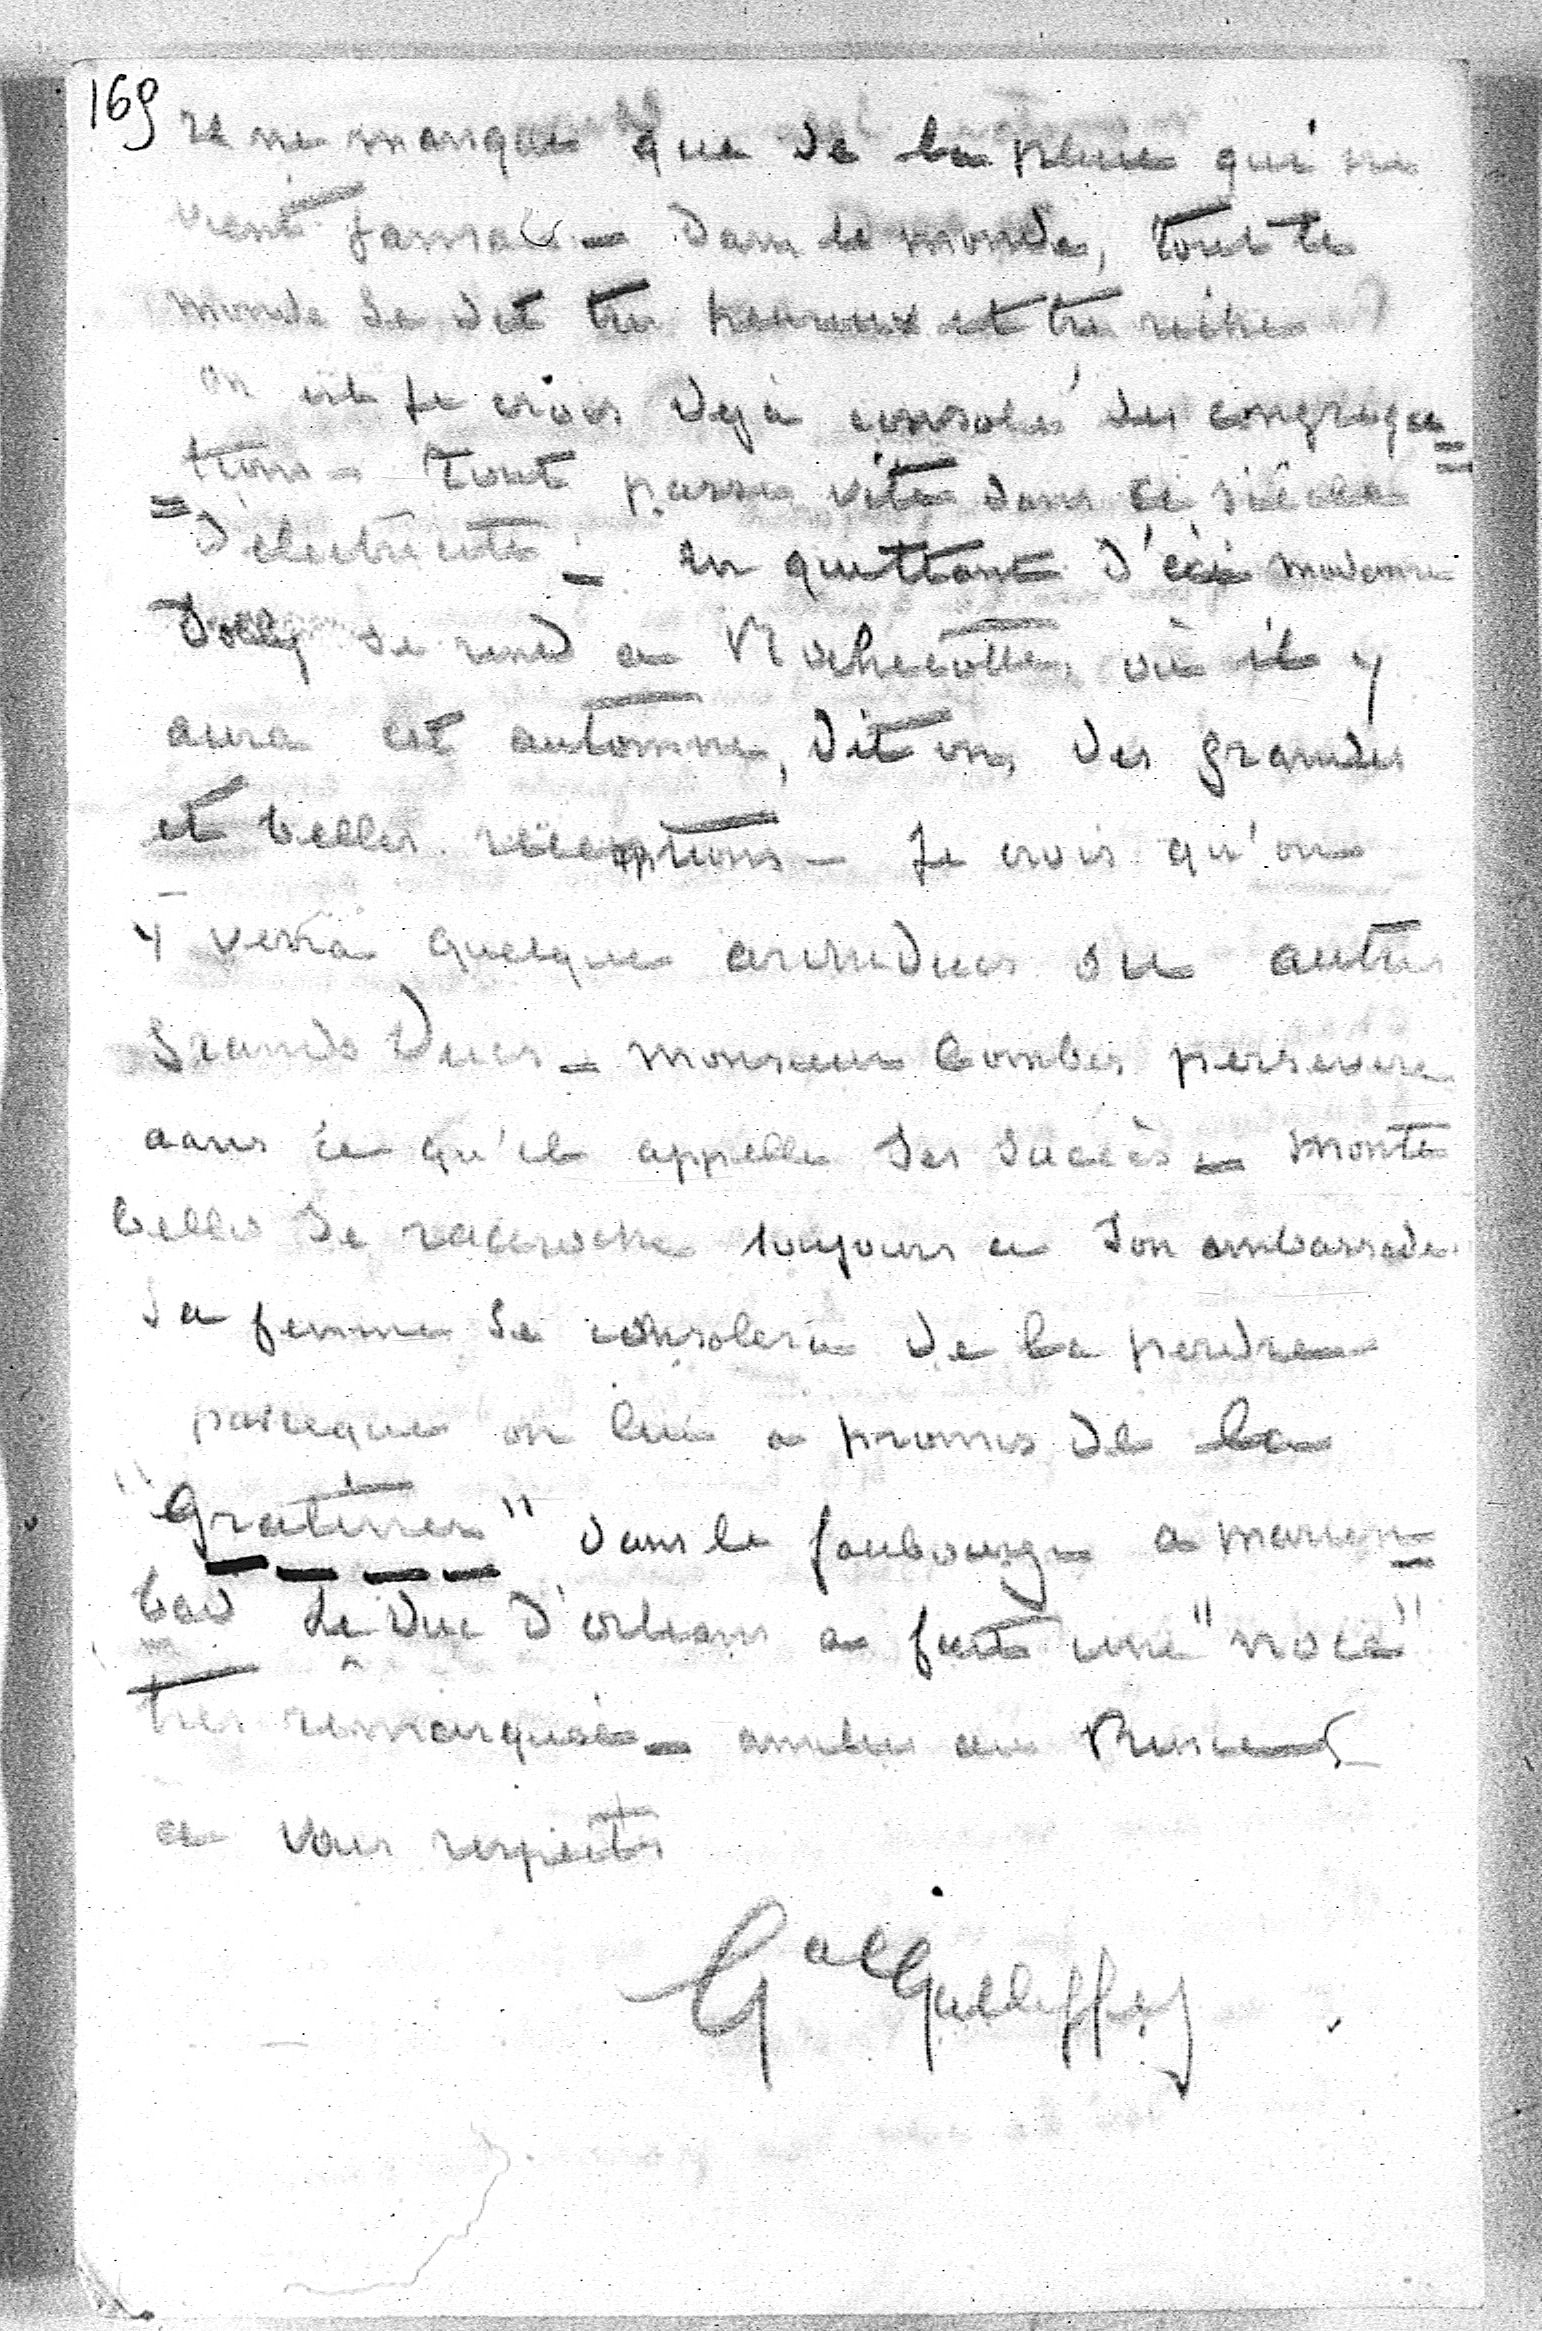 169
re ne manque que de la pluie qui ne
vient jamais - dans le monde, tout le
monde se dit très heureux et très riche
on est je crois déjà consolé des congréga=
=tions - tout passe vite dans ce siècle
d'électricité - en quittant d'ici madame
Dolly se rend a Rochecotte, où il y
aura cet automne, dit on, des grandes
et belles réceptions - Je crois qu'on
y verra quelque archiducs ou autres
grands Ducs - monsieur Combes persevere
dans ce qu'il appelle ses succès - Monte
bello se raccroche toujours a son ambassade
sa femme se consolera de la perdre
parceque on lui a promis de la
"Gratiner" dans le faubourg a marien=
bad Le Duc d'orleans a fait une "noce"
très remarquée - amitiés au Prince
a vous respects
Gal Galliffet